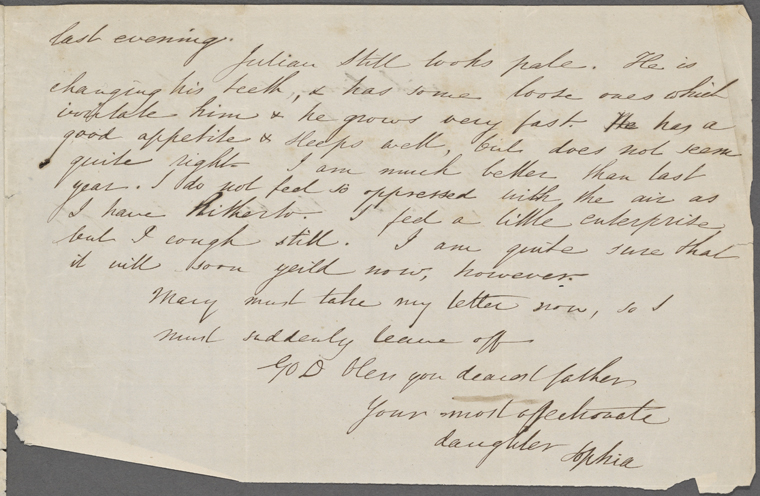 last evening.
Julian still looks pale. He is
changing his teeth, & has some loose ones which
irritate him & he grows very fast. He has a
good appetite & sleeps well, but does not seem
quite right. I am much better than last
year. I do not feel so oppressed with the air as
I have hitherto. I feel a little enterprise,
but I cough still. I am quite sure that
it will soon yeild now, however.
Mary must take my letter now, so I
must suddenly leave off
GOD bless you dearest father
Your most affectionate
daughter Sophia